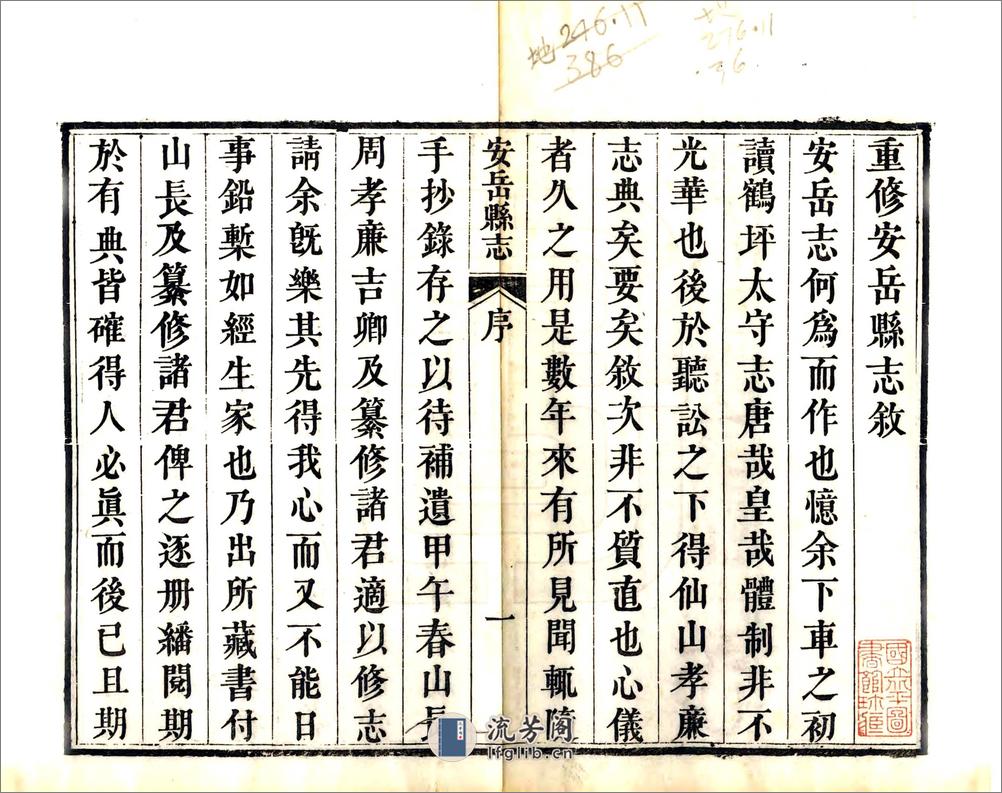 重修安岳縣志敘
安岳志何爲而作也憶余下車之初
讀鶴坪太守志唐哉皇哉體制非不
光華也後於聽訟之下得仙山孝廉
志典矣要矣敘次非不質直也心儀
者久之用是數年來有所見聞輒隨
安岳縣志 序 一
手抄錄存之以待補遺甲午春山長
周孝廉吉卿及纂修諸君適以修志
請余旣樂其先得我心而又不能日
事鉛槧如經生家也乃出所藏書付
山長及纂修諸君俾之逐册繙閱期
於有典皆確得人必眞而後已且期
地 246.11
386
地
276.11
.36
流芳阁
lfglib.cn